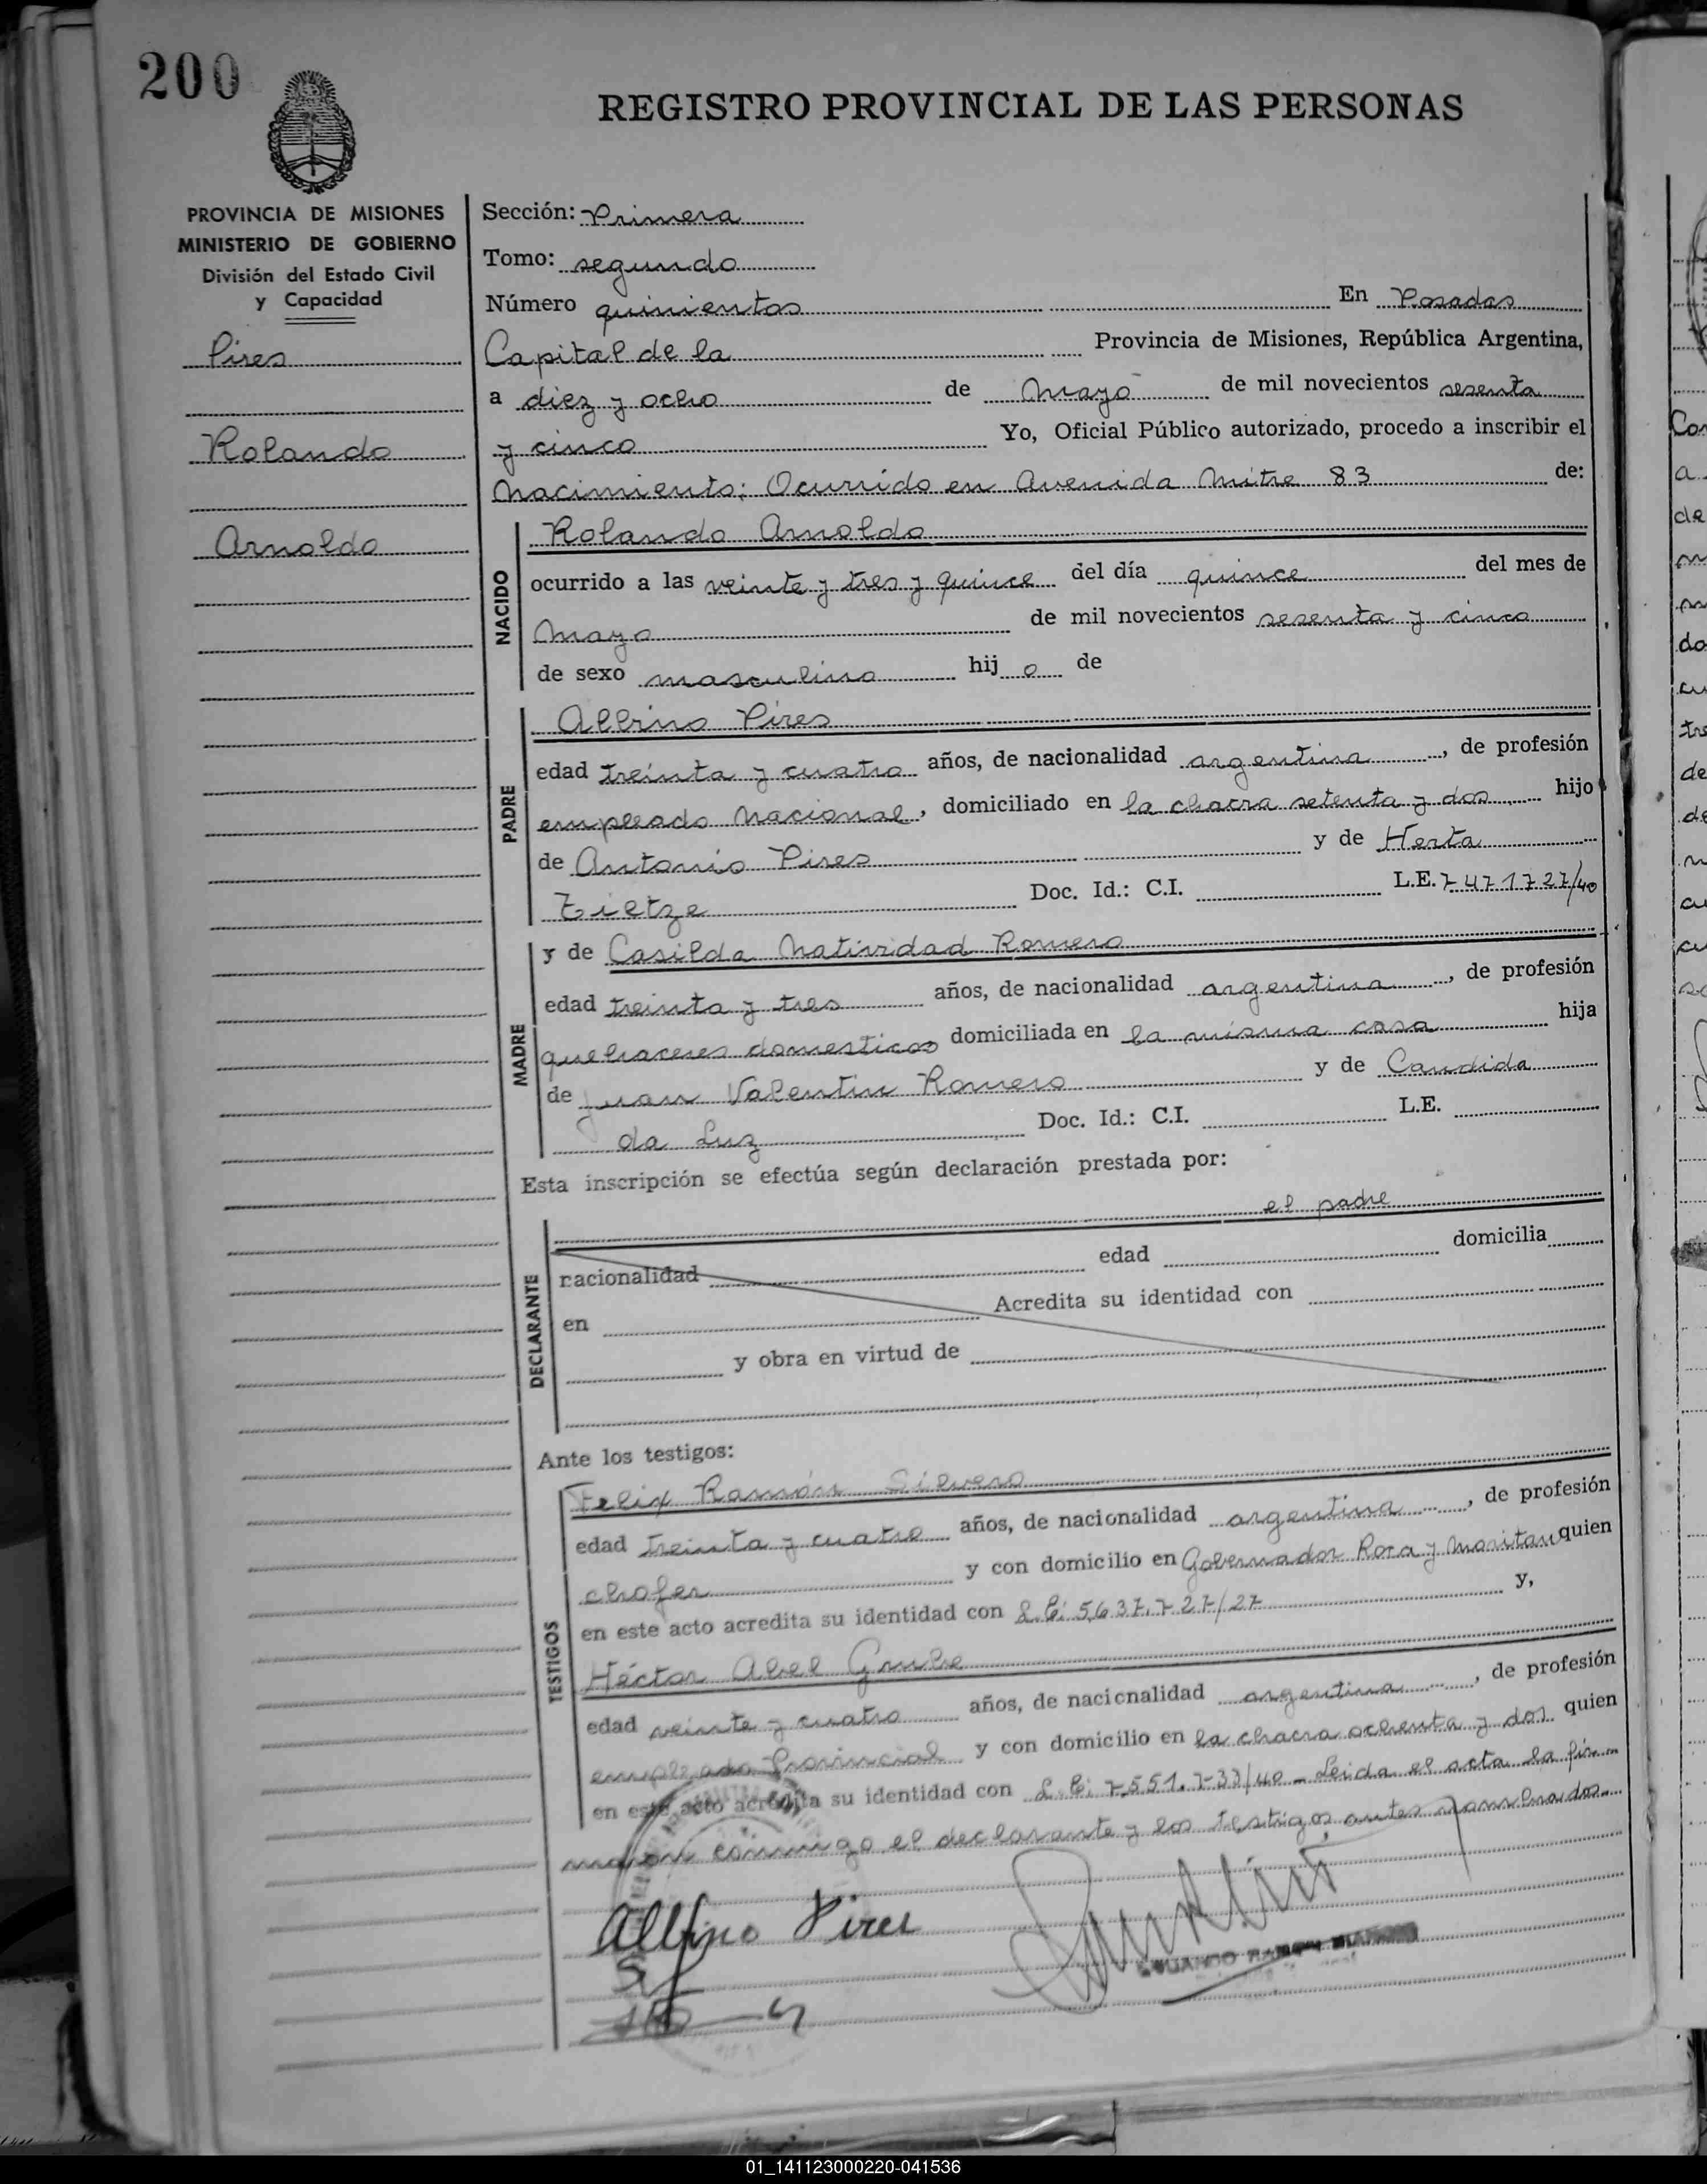 200
REGISTRO PROVINCIAL DE LAS PERSONAS
PROVINCIA DE MISIONES
MINISTERIO DE GOBIERNO
División del Estado Civil
y Capacidad
Pires
Rolando
Arnoldo
Sección: Primera
Tomo: segundo
Número quinientos En Posadas
Capital de la Provincia de Misiones, República Argentina,
a diez y ocho de Mayo de mil novecientos sesenta
y cinco Yo, Oficial Público autorizado, procedo a inscribir el
Nacimiento: Ocurrido en Avenida Mitre 83 de:
NACIDO
Rolando Arnoldo
ocurrido a las veinte y tres y quince del día quince del mes de
Mayo de mil novecientos sesenta y cinco
de sexo masculino hij o de
PADRE
Albino Pires
edad treinta y cuatro años, de nacionalidad argentina, de profesión
empleado Nacional, domiciliado en la chacra setenta y dos hijo
de Antonio Pires y de Herta
Tietze Doc. Id.: C.I. L.E. 7471727/40
MADRE
y de Casilda Natividad Romero
edad treinta y tres años, de nacionalidad argentina, de profesión
quehaceres domesticos domiciliada en la misma casa hija
de Juan Valentin Romero y de Candida
da Luz Doc. Id.: C.I. L.E.
Esta inscripción se efectúa según declaración prestada por:
el padre
DECLARANTE
nacionalidad edad domicilia
en Acredita su identidad con
y obra en virtud de
Ante los testigos:
TESTIGOS
Felix Ramón Silvero
edad treinta y cuatro años, de nacionalidad argentina, de profesión
chofer y con domicilio en Gobernador Roca y quien
en este acto acredita su identidad con L.E: 5637.727/27 y,
Héctor Abel Grube
edad veinte y cuatro años, de nacionalidad argentina, de profesión
empleado Provincial y con domicilio en la chacra ochenta y dos quien
en este acto acredita su identidad con L.E: 7.551.733/40 - Leida el acta la fir-
maron conmigo el declarante y los testigos antes nombrados.
Albino Pires
01_141123000220-041536